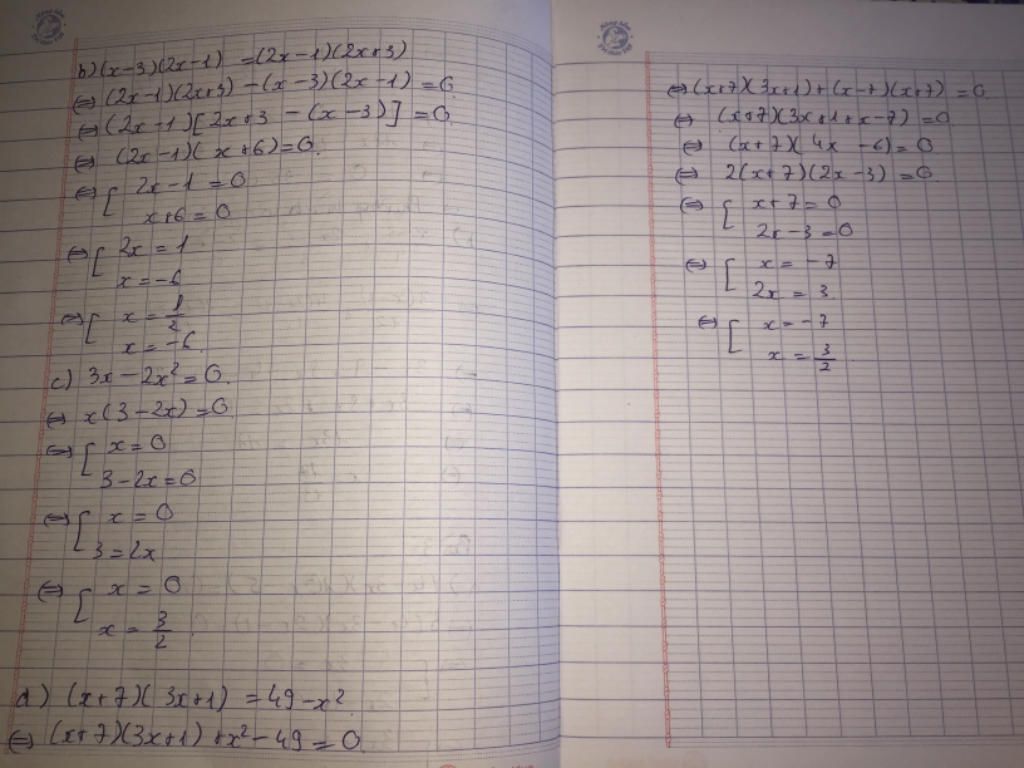 b) (x-3)(2x-1) = (2x-1)(2x+3)
⇔ (2x-1)(2x+3) - (x-3)(2x-1) = 0
⇔ (2x-1)[2x+3 - (x-3)] = 0.
⇔ (2x-1)(x+6) = 0.
⇔ [ 2x-1 = 0
x+6 = 0
⇔ [ 2x = 1
x = -6
⇔ [ x = 1/2
x = -6.
c) 3x - 2x² = 0.
⇔ x(3-2x) = 0
⇔ [ x = 0
3-2x = 0
⇔ [ x = 0
3 = 2x
⇔ [ x = 0
x = 3/2.
d) (x+7)(3x+1) = 49-x².
⇔ (x+7)(3x+1) + x² - 49 = 0
⇔ (x+7)(3x+1) + (x-7)(x+7) = 0.
⇔ (x+7)(3x+1+x-7) = 0
⇔ (x+7)(4x-6) = 0
⇔ 2(x+7)(2x-3) = 0.
⇔ [ x+7 = 0
2x-3 = 0
⇔ [ x = -7
2x = 3.
⇔ [ x = -7
x = 3/2.